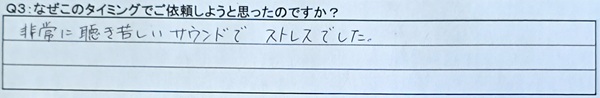 Q3:なぜこのタイミングでご依頼しようと思ったのですか?
非常に聴き苦しいサウンドで ストレスでした。